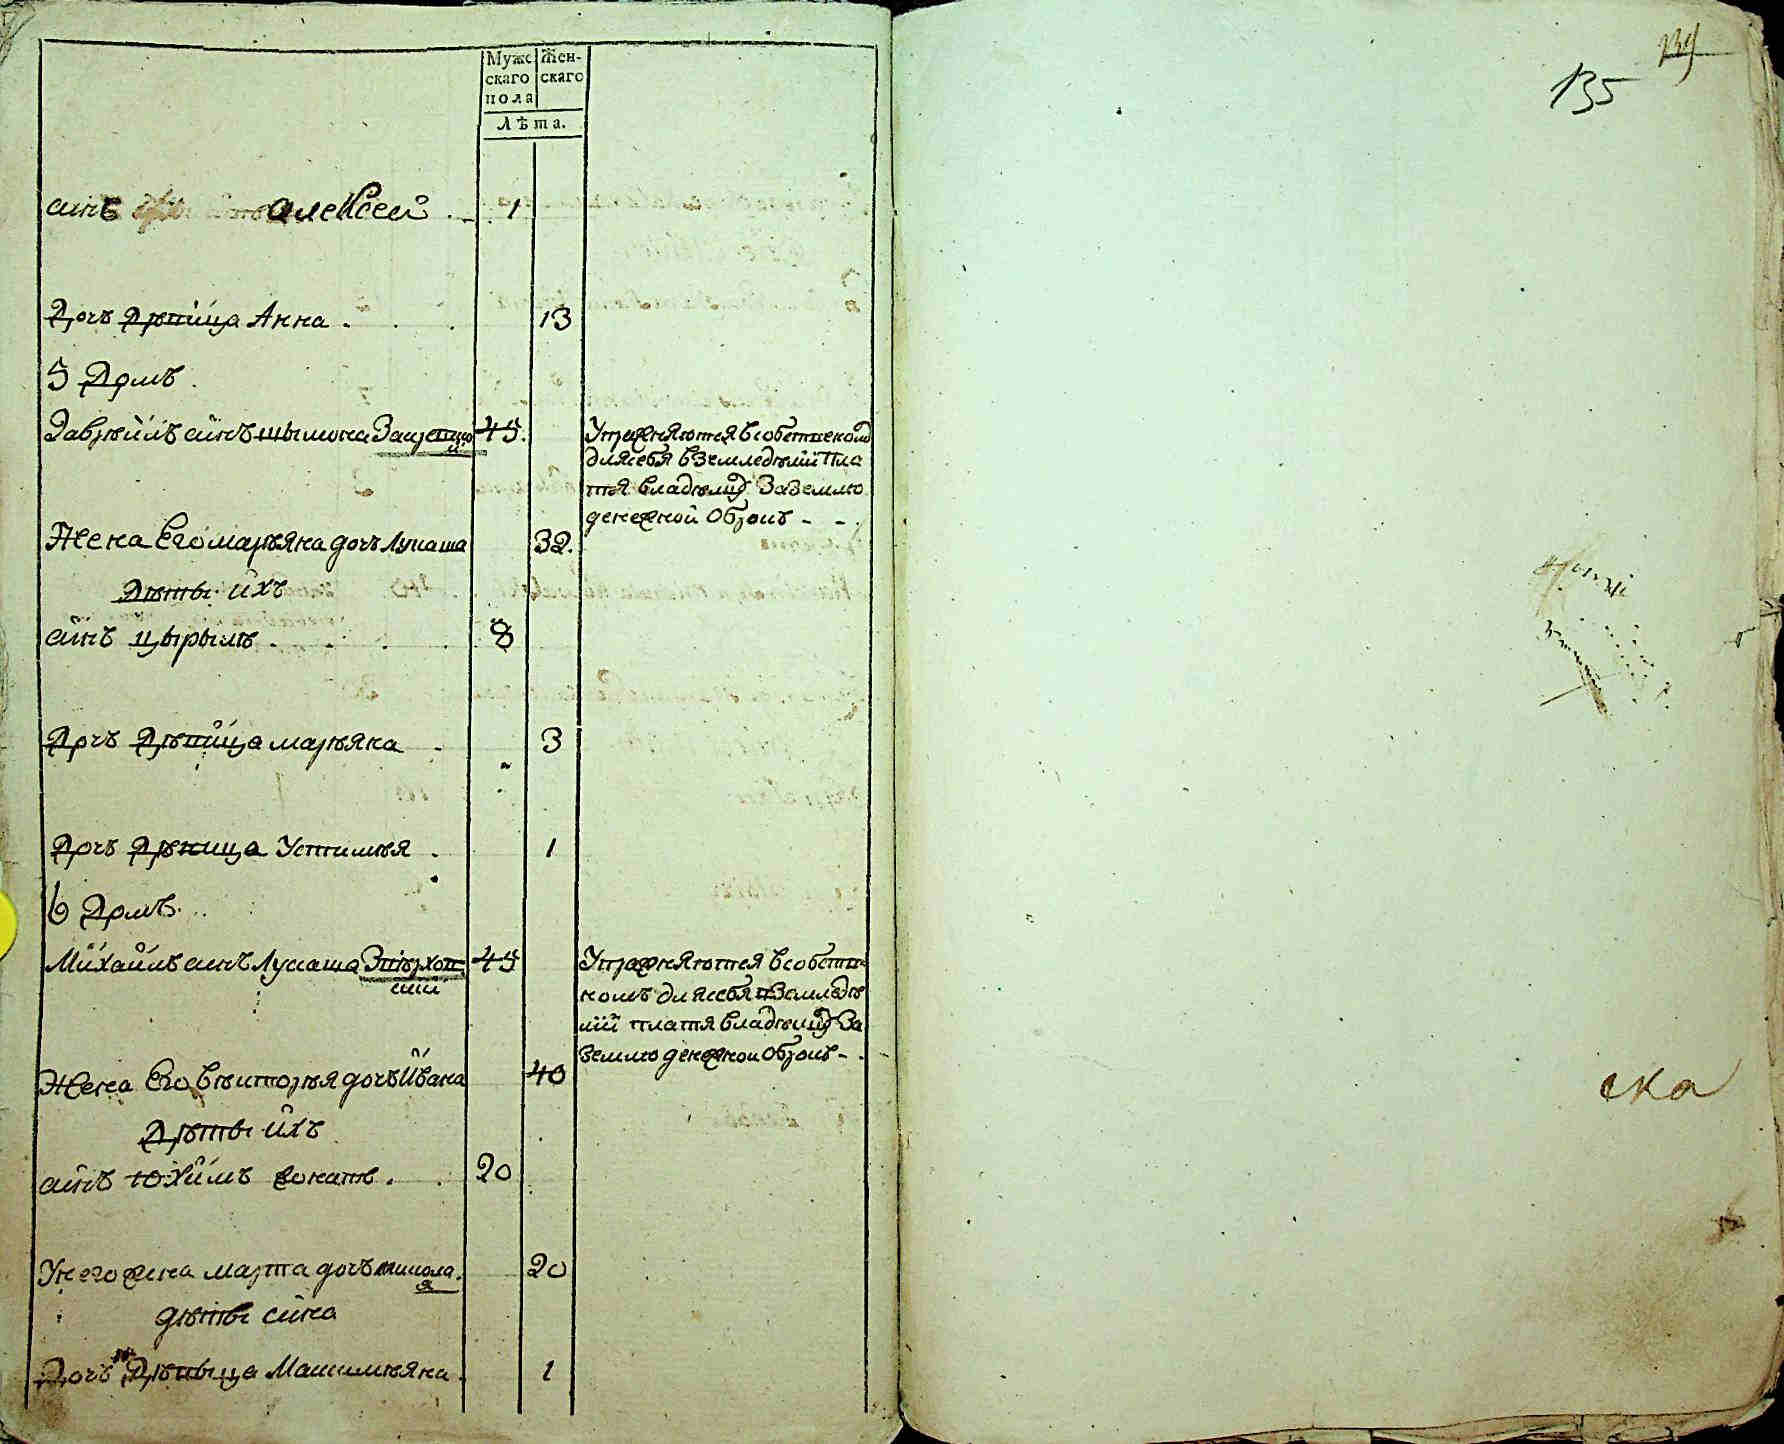 Мужс Жен-
скаго скаго
пола
Лѣта.
синъ Алексей 1
Дочъ Дѣвица Анна 13
5 Домъ
Гаврѣилъ синъ Шымона 45.
Упражняются в собственомъ
для себя в Земледѣлий Пла
тя владѣлцу За Землю
денежной Оброкъ - -
Жена Его марьяна дочъ Лукаша 32.
Дѣты ихъ
синъ Цырыль 8
Дочъ Дѣвица марьяна 3
Дочъ Дѣвица Устимья 1
6 Домъ
Михайлъ синъ Лукаша 45
Упражняютея в собствен
номъ для себя Земледѣ
лий платя владѣлцу За
Землю денежнои Оброкъ -
Жена Его вѣкторья дочъ Ивана 40
Дѣты ихъ
синъ Юхимъ женатъ 20
У него жена марта дочъ микола
я 20
дѣты сина
Дочъ Дѣвыца Макимьяна 1
135
ска